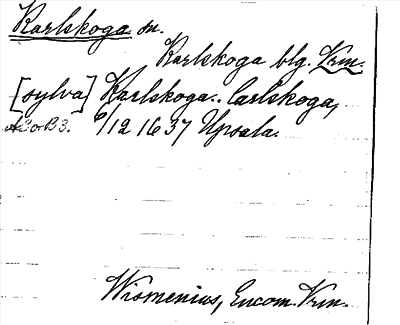 Karlskoga sn.
Karlskoga blg. Vrm.
[sylva] Karlskoga.. Carlskoga,
A3o B3. 6/12 1637 Upsala.
Wismenius, Encom. Vrm.